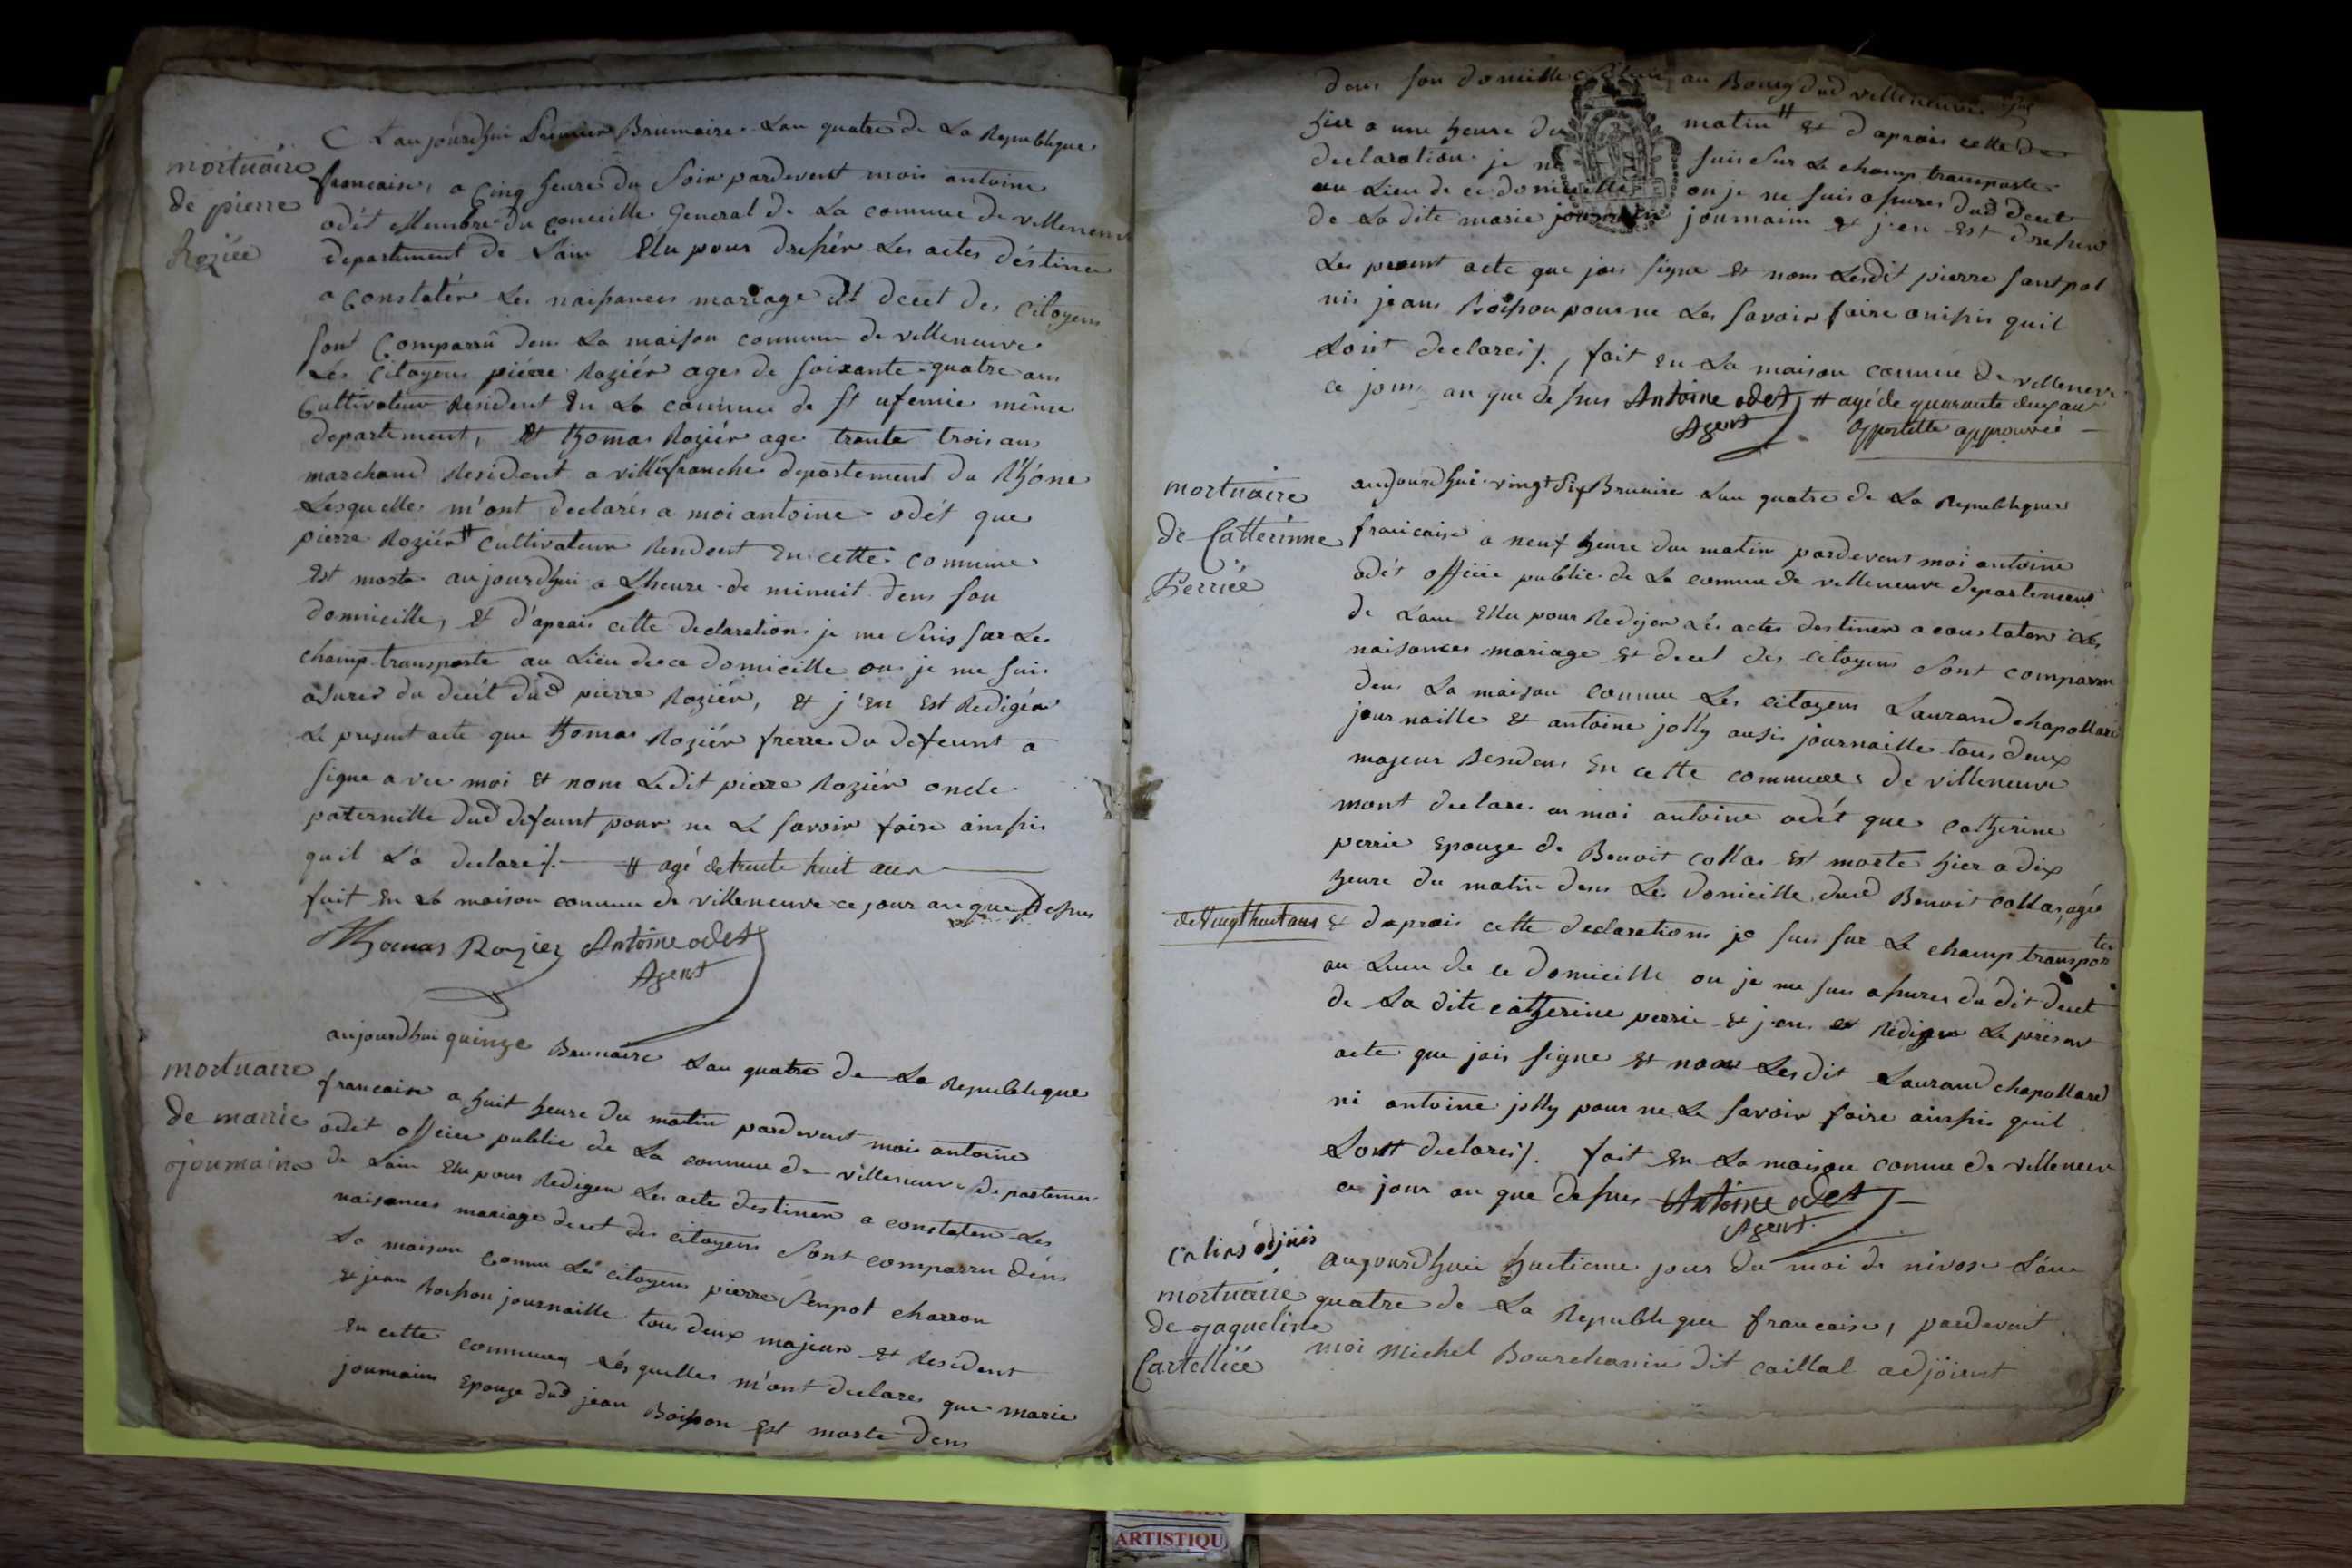 aujourdhui Premier Brumaire Lan quatre de La Republique
mortuaire
de pierre
Roziée
francaise, a Cinq heure du Soir pardevent moi antoine
odét Membre du Conceille General de La commune de villeneuve
departement de Lain Elu pour dresér Les actes déstiner
a Constatér Les naisances mariage Et decet des Citoyens
sont Comparru dens La maison commune de villeneuve
Les Citoyens piérre Roziér ages de soixante quatre ans
Cultivateur Resident En La commune de st ufemie même
departement, Et thomas Roziér age trante trois ans
marchand Resident a villefranche departement du Rhône
Lesquelles m'ont declarés a moi antoine odét que
pierre Roziér # Cultivateur Resident En cette commune
Est morte aujourdhui a L'heure de minuit dens son
domicille, Et d'aprais cette declaration je me suis sur Le
champ transporte au Lieu de ce domicille ou je me suis
asurer du decét dud pierre Roziér, Et j'En Est Redigér
Le present acte que thomas Roziér frerre du defeunt a
signe avec moi Et nom Ledit pierre Roziér oncle
paternelle dud defeunt pour ne Le savoir faire ainssis
quil L'a declare /. # agé de trente huit ans
fait En La maison commune de villeneuve ce jour an que Desus
Thomas Rozier Antoine odet
Agent
aujourdhui quinze Brumaire Lan quatre de La Republique
mortuaire
de marrie
joumain
francaise a huit heure du matin pardevent moi antoine
odet officier public de La commune de villeneuve departemen
de Lain Elu pour Rediger Les acte destiner a constater Les
naisances mariage decet des citoyens sont comparru dens
La maison commu Lés citoyens pierre Senpot charron
Et jean Boisson journaille tous deux majeur Et Resident
En cette commune, Lésquelles m'ont declares que marie
joumain Epouze dud jean Boisson Est morte dens
dens son domicille au Bourg dud villeneuve
hier a une heure du matin # Et d'aprais cette
declaration je me suis sur Le champ transporte
au Lieu de ce domicille ou je me suis asurer dud decet
de La dite marie joumain Et j'en Est dresér
Les present acte que jais signe Et nom Lesdit pierre santpol
nis jeans Boisson pour ne Les savoir faire ainssis quil
Lont declareis /. fait En La maison commune de villeneuve
ce jour an que desus Antoine odet # agé de quarante deux ans
Agent appostille approuvée
mortuaire
de Catterinne
Perriée
aujourdhui vingt six Brumaire Lan quatre de La Republique
francaise a neuf heure du matin pardevent moi antoine
odét officie public de La commune de villeneuve departement
de Lain Ellu pour Redijer Lés actes destiner a constater Les
naisances mariage Et decet des citoyens sont comparru
dens La maison commune Les citoyens Laurand chapollard
journaille Et antoine jolly ausis journaille tous deux
majeur Residens En cette commune de villeneuve
mont declare a moi antoine odét que catherine
perrie Epouze de Benoit collas Est morte hier a dix
heure du matin dens Les domicille dud Benoit collas, agée
de Vingt huit ans Et daprais cette declarations je suis sur Le champ transporter
au Lieu de ce domicille ou je me suis asurer du dit decet
de La dite catherine perrie Et j'en est Rédiger Le présent
acte que jais signe Et nom Lesdit Laurand chapollard
ni antoine jolly pour ne Le savoir faire ainssis quil
Lont declareis /. fait En La maison commune de villeneuve
ce jour an que desus Antoine odet
Agent
mortuaire
de jaqueline
Cartelliée
aujourdhui huitieme jour du moi de nivose L'an
quatre de La Republique francaise, pardevent
moi Michel Bourchanin dit caillat adjoient
ARTISTIQU